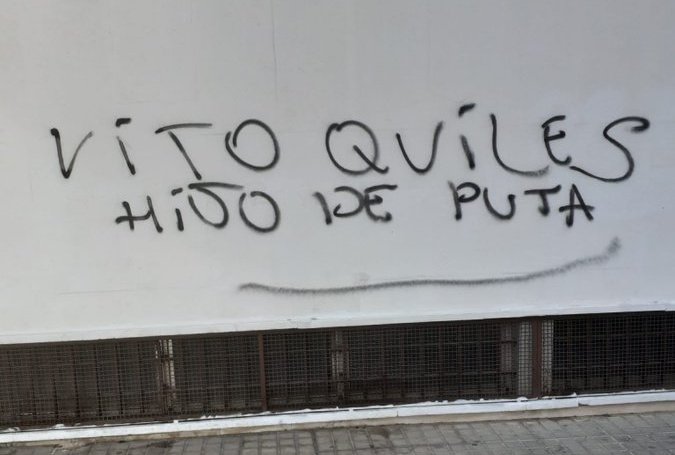 ViTO QUiLES
HiJO DE PUTA